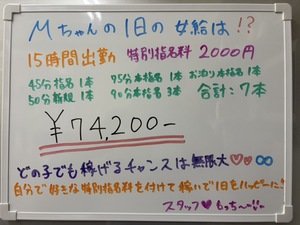 Mちゃんの1日の女給は!?
15時間出勤 特別指名料 2000円
45分指名 1本 95分本指名 1本 お泊り本指名 1本
50分新規 1本 90分本指名 3本 合計:7本
¥74,200-
どの子でも稼げるチャンスは無限大♡♡∞
自分で好きな特別指名料を付けて稼いで1日をハッピーに!
スタッフ♡もっち〜